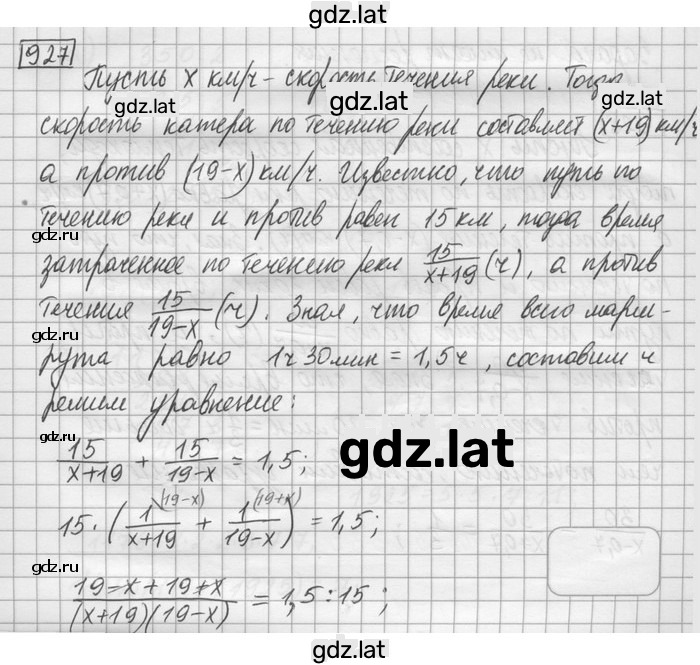 gdz.lat
927
Пусть x км/ч - скорость течения реки. Тогда
gdz.lat gdz.lat
скорость катера по течению реки составляет (x+19) км/ч
а против (19-x) км/ч. Известно, что путь по
течению реки и против равен 15 км, тогда время
gdz.lat gdz.lat
затраченное по течению реки 15/(x+19) (ч), а против
течения 15/(19-x) (ч). Зная, что время всего марш-
рута равно 1ч 30мин = 1,5ч, составим и
решим уравнение:
15/(x+19) + 15/(19-x) = 1,5;
gdz.lat
15·(1^(19-x)/(x+19) + 1^(19+x)/(19-x)) = 1,5;
gdz.lat
(19-x+19+x)/((x+19)(19-x)) = 1,5:15;
gdz.lat
gdz.lat